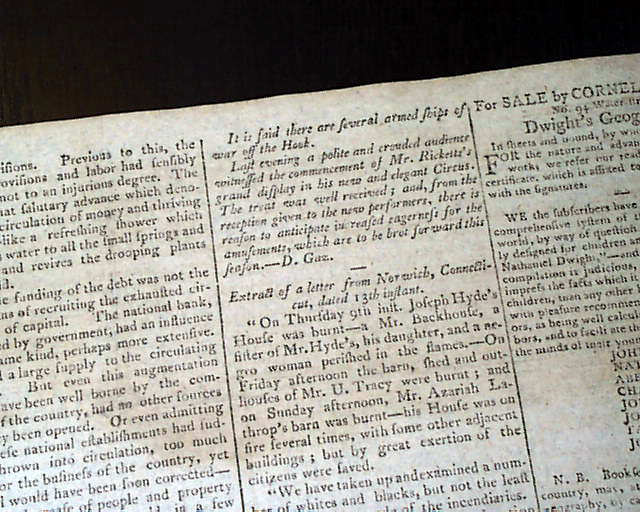 isions. Previous to this, the
ovisions and labor had sensibly
not to an injurious degree. The
at salutary advance which deno-
circulation of money and thriving
like a refreshing shower which
water to all the small springs and
and revives the drooping plants
d.
e funding of the debt was not the
ns of recruiting the exhausted cir-
of capital. The national bank,
ed by government, had an influence
ame kind, perhaps more extensive.
d a large supply to the circulating
But even this augmentation
have been well borne by the com-
of the country, had no other sources
y been opened. Or even admitting
ese national establishments had sud-
hrown into circulation, too much
or the business of the country, yet
l would have been soon corrected—
rease of people and property
in a few
It is said there are several armed ships of
war off the Hook.
Last evening a polite and crouded audience
witnessed the commencement of Mr. Ricketts's
grand display in his new and elegant Circus.
The treat was well received; and, from the
reception given to the new performers, there is
reason to anticipate increased eagerness for the
amusements, which are to be brot forward this
season.—D. Gaz.
Extract of a letter from Norwich, Connecti-
cut, dated 13th instant.
"On Thursday 9th inst. Joseph Hyde's
House was burnt—a Mr. Backhouse, a
sister of Mr. Hyde's, his daughter, and a ne-
gro woman perished in the flames.—On
Friday afternoon the barn, shed and out-
houses of Mr. U. Tracy were burnt; and
on Sunday afternoon, Mr. Azariah La-
throp's barn was burnt—his House was on
fire several times, with some other adjacent
buildings; but by great exertion of the
citizens were saved.
"We have taken up and examined a num-
ber of whites and blacks, but not the least
of the incendiaries.
For SALE by CORNEL
No. 94 Water
Dwight's Geog
In sheets and bound, by
FOR the nature and advan
work, we refer our
certificate, which is affixed to
with the signatures.
WE the subscribers have
comprehensive system of
world, by way of question
ly designed for children
Nathaniel Dwight,"—and
compilation is judicious,
the facts which
children, than any other
with pleasure recommen
ors, as being well calcul
bors, and to facilitate
the minds of their young
JOH
NAT
ABE
CHA
JO
JO
N. B. Books
country, may
geography,